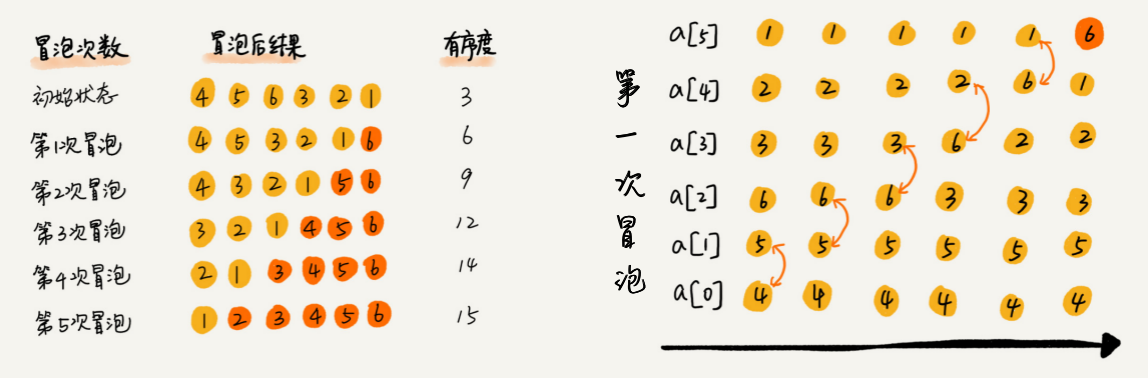 冒泡次数 冒泡后结果 有序度
初始状态 4 5 6 3 2 1 3
第1次冒泡 4 5 3 2 1 6 6
第2次冒泡 4 3 2 1 5 6 9
第3次冒泡 3 2 1 4 5 6 12
第4次冒泡 2 1 3 4 5 6 14
第5次冒泡 1 2 3 4 5 6 15
第一次冒泡
a[5] 1 1 1 1 1 6
a[4] 2 2 2 2 6 1
a[3] 3 3 3 6 2 2
a[2] 6 6 6 3 3 3
a[1] 5 5 5 5 5 5
a[0] 4 4 4 4 4 4